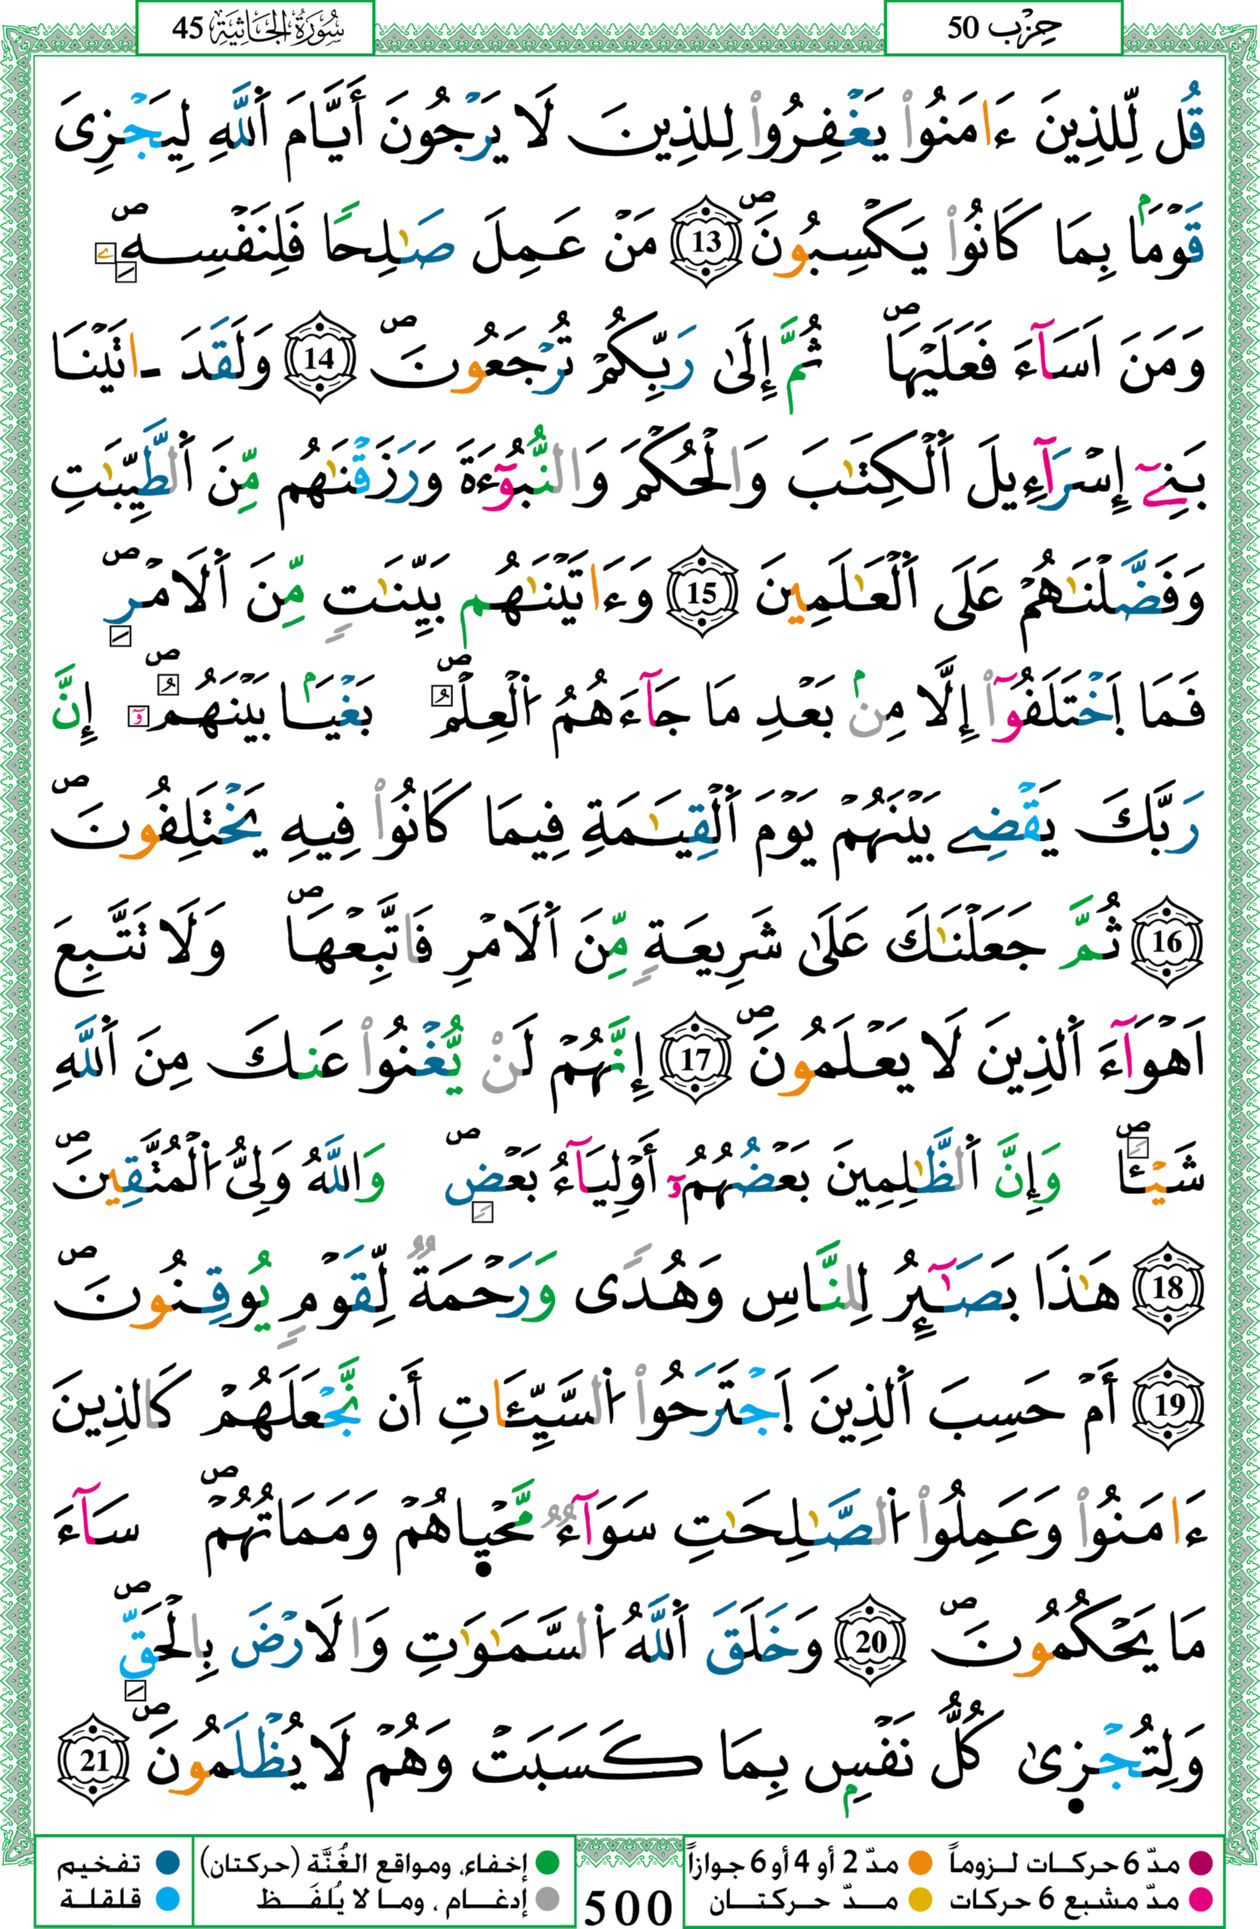 حِزْب 50
سُورَةُ الجَاثِيَةِ 45
قُل لِّلذِينَ ءَامَنُواْ يَغْفِرُواْ لِلذِينَ لَا يَرْجُونَ أَيَّامَ اَ۬للَّهِ لِيَجْزِىَ
قَوْمَاۢ بِمَا كَانُواْ يَكْسِبُونَۖ 13 مَنْ عَمِلَ صَٰلِحاٗ فَلِنَفْسِهِۦۖ
وَمَنَ اَسَآءَ فَعَلَيْهَاۖ ثُمَّ إِلَىٰ رَبِّكُمْ تُرْجَعُونَۖ 14 وَلَقَدَ ـ اتَيْنَا
بَنِےٓ إِسْرَآءِيلَ اَ۬لْكِتَٰبَ وَالْحُكْمَ وَالنُّبُوٓءَةَ وَرَزَقْنَٰهُم مِّنَ اَ۬لطَّيِّبَٰتِ
وَفَضَّلْنَٰهُمْ عَلَى اَ۬لْعَٰلَمِينَ 15 وَءَاتَيْنَٰهُم بَيِّنَٰتٖ مِّنَ اَ۬لَامْرِۖ
فَمَا اَ۪خْتَلَفُوٓاْ إِلَّا مِنۢ بَعْدِ مَا جَآءَهُمُ اُ۬لْعِلْمُۖ بَغْياَۢ بَيْنَهُمُۥٓۖ إِنَّ
رَبَّكَ يَقْضِے بَيْنَهُمْ يَوْمَ اَ۬لْقِيَٰمَةِ فِيمَا كَانُواْ فِيهِ يَخْتَلِفُونَۖ
16 ثُمَّ جَعَلْنَٰكَ عَلَىٰ شَرِيعَةٖ مِّنَ اَ۬لَامْرِ فَاتَّبِعْهَاۖ وَلَا تَتَّبِعَ
اَهْوَآءَ اَ۬لذِينَ لَا يَعْلَمُونَۖ 17 إِنَّهُمْ لَنْ يُّغْنُواْ عَنكَ مِنَ اَ۬للَّهِ
شَيْـٔاٗۖ وَإِنَّ اَ۬لظَّٰلِمِينَ بَعْضُهُمُۥٓ أَوْلِيَآءُ بَعْضٖۖ وَاللَّهُ وَلِىُّ اُ۬لْمُتَّقِينَۖ
18 هَٰذَا بَصَٰٓئِرُ لِلنَّاسِ وَهُدىٗ وَرَحْمَةٞ لِّقَوْمٖ يُوقِنُونَۖ
19 أَمْ حَسِبَ اَ۬لذِينَ اَ۪جْتَرَحُواْ اُ۬لسَّيِّـَٔاتِ أَن نَّجْعَلَهُمْ كَالذِينَ
ءَامَنُواْ وَعَمِلُواْ اُ۬لصَّٰلِحَٰتِ سَوَآءٞ مَّحْي۪اهُمْ وَمَمَاتُهُمْۖ سَآءَ
مَا يَحْكُمُونَۖ 20 وَخَلَقَ اَ۬للَّهُ اُ۬لسَّمَٰوَٰتِ وَالَارْضَ بِالْحَقِّۖ
وَلِتُجْز۪ىٰ كُلُّ نَفْسِۢ بِمَا كَسَبَتْ وَهُمْ لَا يُظْلَمُونَۖ 21
مدّ 6 حركات لـزوماً مدّ 2 أو 4 أو 6 جوازاً
مدّ مشبع 6 حركات مــدّ حركتــان
500
إخفاء، ومواقع الغُنَّة (حركتان)
إدغـام ، ومـا لا يُلفَـظ
تفخيم
قلقلة